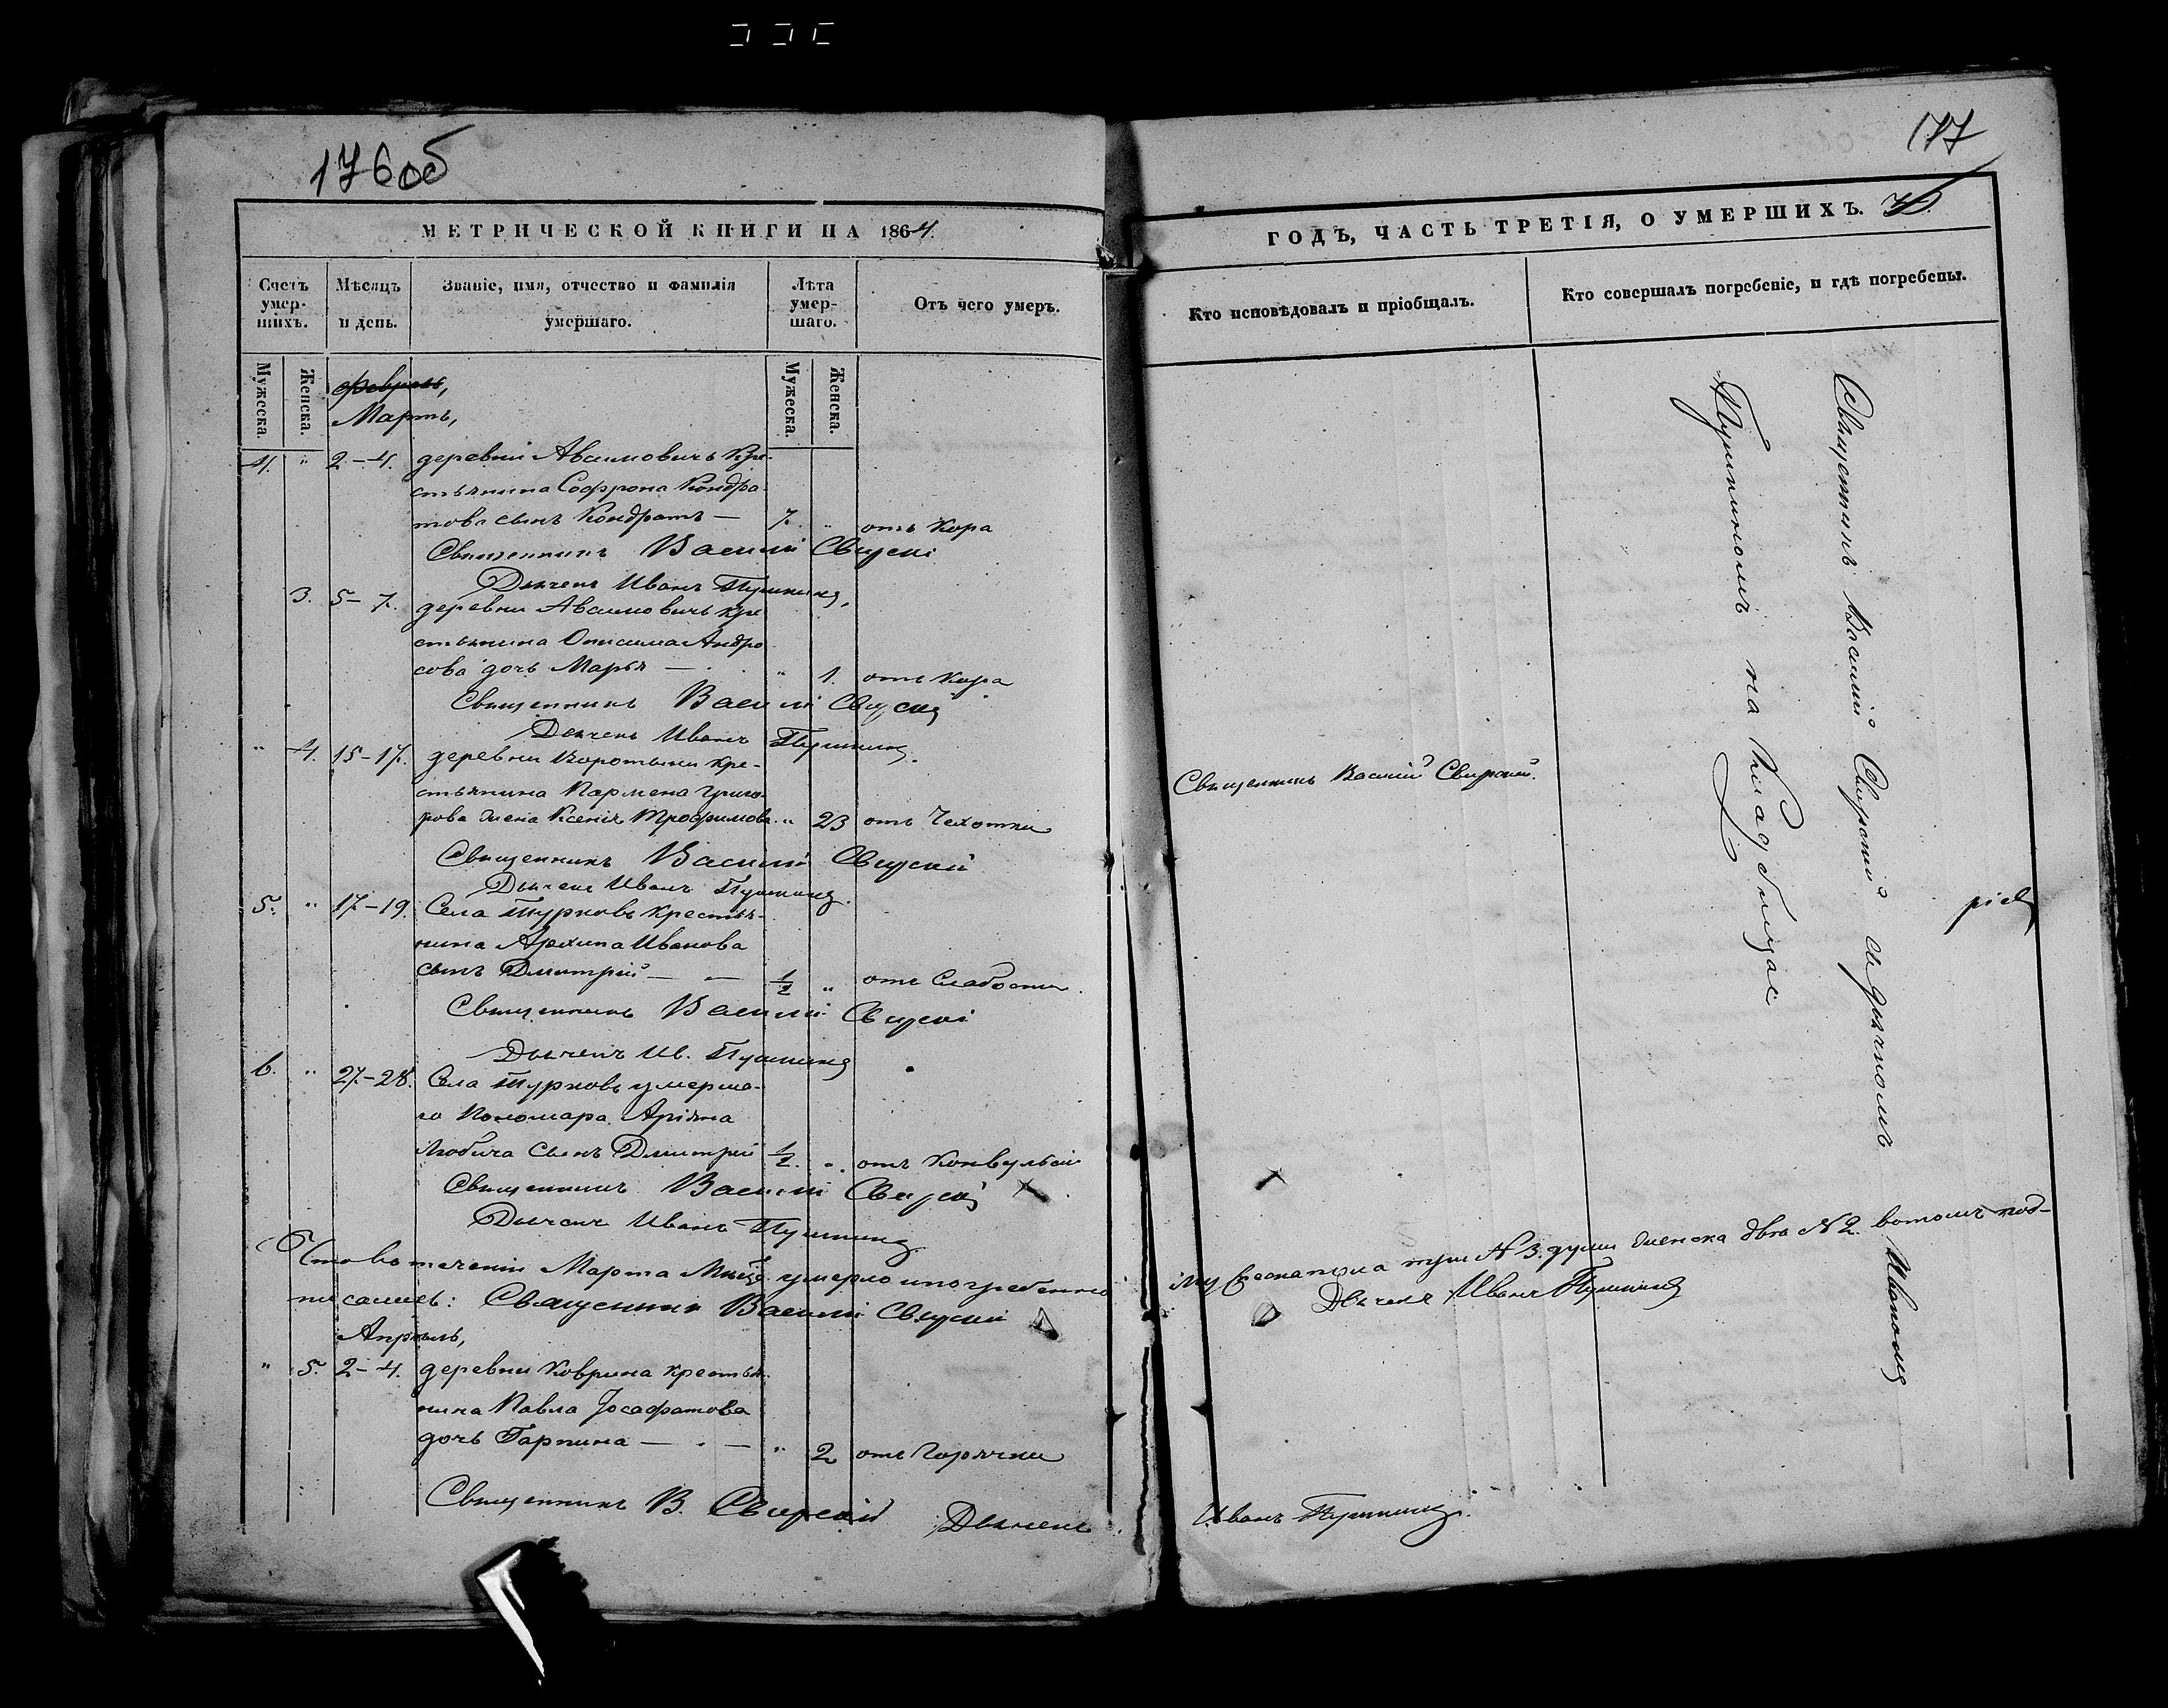 176об
МЕТРИЧЕСКОЙ КНИГИ НА 1864.
Счетъ умер-шихъ.
Мѣсяцъ и день.
Званіе, имя, отчество и фамилія умершаго.
Лѣта умер-шаго.
Отъ чего умеръ.
Мужеска.
Женска.
Мужеска.
Женска.
февраль,
Мартъ,
4. " 2-4. деревни Авсимовичъ кре-
стьянина Софрона Кондра-
това сынъ Кондратъ — 7. " отъ Кора
Священникъ Василій Свирскій
Дьячекъ Иванъ Пушкинъ,
3. 5-7. деревни Авсимовичъ кре
стьянина Онисима Андро
сова дочь Марья — " 1. отъ Кора
Священникъ Василій Свирскій
Дьячекъ Иванъ Пушкинъ.
" 4. 15-17. деревни Коротыни кре-
стьянина Пармена Григо-
рова жена Ксенія Трофимова " 23 отъ Чехотки
Священникъ Василій Свирскій
Дьячекъ Иванъ Пушкинъ.
5. " 17-19. Села Турковъ крестья-
нина Архипа Иванова
сынъ Дмитрій — — 1/2 " отъ Слабости.
Священникъ Василій Свирскій
Дьячекъ Ив. Пушкинъ
6. " 27-28. Села Турковъ умерша-
го Пономара Аріяна
сынъ Дмитрій 1/2. " отъ Конвульсіи
Священникъ Василій Свирскій
Дьячекъ Иванъ Пушкинъ
Что въ теченіи Марта умерло и погребенно
писались: Священникъ Василій Свирскій
Апрѣль,
" 5. 2-4. деревни Коврина крестья-
нина Павла Іосафатова
дочь Гарпина — - — " 2 отъ Горячки
Священникъ В. Свирскій Дьячекъ
177
ГОДЪ, ЧАСТЬ ТРЕТІЯ, О УМЕРШИХЪ.
Кто исповѣдовалъ и пріобщалъ.
Кто совершалъ погребеніе, и гдѣ погребены.
Священникъ Василій Свирскій.
Священникъ Василій Свирскій съ дьячкомъ Иваномъ
Пушкиномъ на Кладбищѣ
мужеска пола три № 3. души женска двѣ № 2. въ томъ под-
Дьячекъ Иванъ Пушкинъ
Иванъ Пушкинъ.